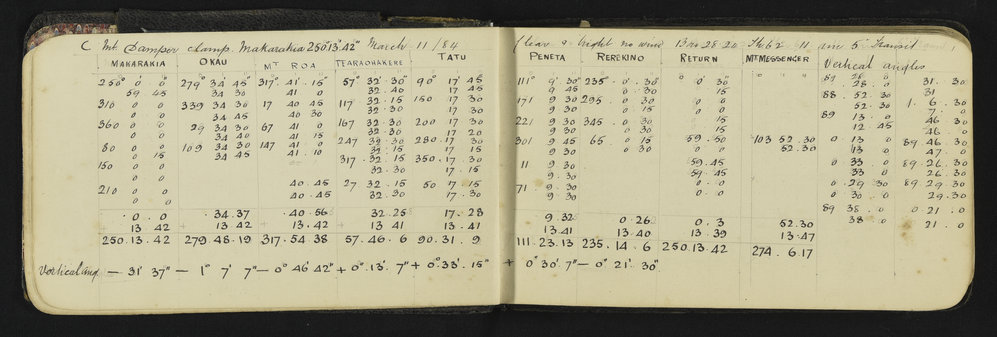 C Mt Damper Camp. Makarakia 250°13'.42" March 11/84 Clear & bright no wind 11 am 5" Transit
MAKARAKIA OKAU MT ROA TEARAOHAKERE TATU PENETA REREKINO RETURN MT MESSENGER Vertical angles
250° 0' 0" 279° 34' 45" 317° 41' 15" 57° 32' 30" 90° 17' 45 111° 9' 30" 235° 0' 30" 0° 0' 30"
59 45 34 30 41 0 32 40 17 45 9 45 0 30 15 28 0 31
310 0 0 339 34 30 17 40 45 117 32 15 150 17 30 171 9 30 295 0 0 0 0 88 52 30 1 6 30
0 0 34 45 40 30 32 30 17 30 9 30 0 30 15 52 30 7 0
360 0 0 29 34 30 67 41 0 167 32 30 200 17 30 221 9 30 345 0 30 0 0 89 13 0 46 30
0 0 34 40 41 15 32 30 17 20 9 30 0 30 15 12 45 46 0
80 0 0 109 34 30 147 41 0 247 32 30 280 17 30 301 9 45 65 0 15 59 50 103 52 30 0 13 0 89 46 30
0 15 34 45 41 10 32 15 17 15 9 30 0 30 0 0 52 30 13 0 47 0
150 0 0 317 32 15 350 17 30 11 9 30 59 45 0 33 0 89 26 30
0 0 32 30 17 15 9 30 59 45 33 0 26 30
210 0 0 40 45 27 32 15 50 17 15 71 9 30 0 0 0 29 30 89 29 30
0 0 40 45 32 30 17 30 9 30 0 0 30 0 29 30
89 38 0 0 21 0
0 0 34 37 40 56 32 25 17 28 9 32 0 26 0 3 52 30 38 0 21 0
13 42 13 42 13 42 13 41 13 41 13 41 13 40 13 39 13 47
250 13 42 279 48 19 317 54 38 57 46 6 90 31 9 111 23 13 235 14 6 250 13 42 274 6 17
Vertical ang — 31' 37" — 1° 7' 7" — 0° 46' 42" + 0° 13' 7" + 0° 33' 15" + 0° 30' 7" — 0° 21' 30"